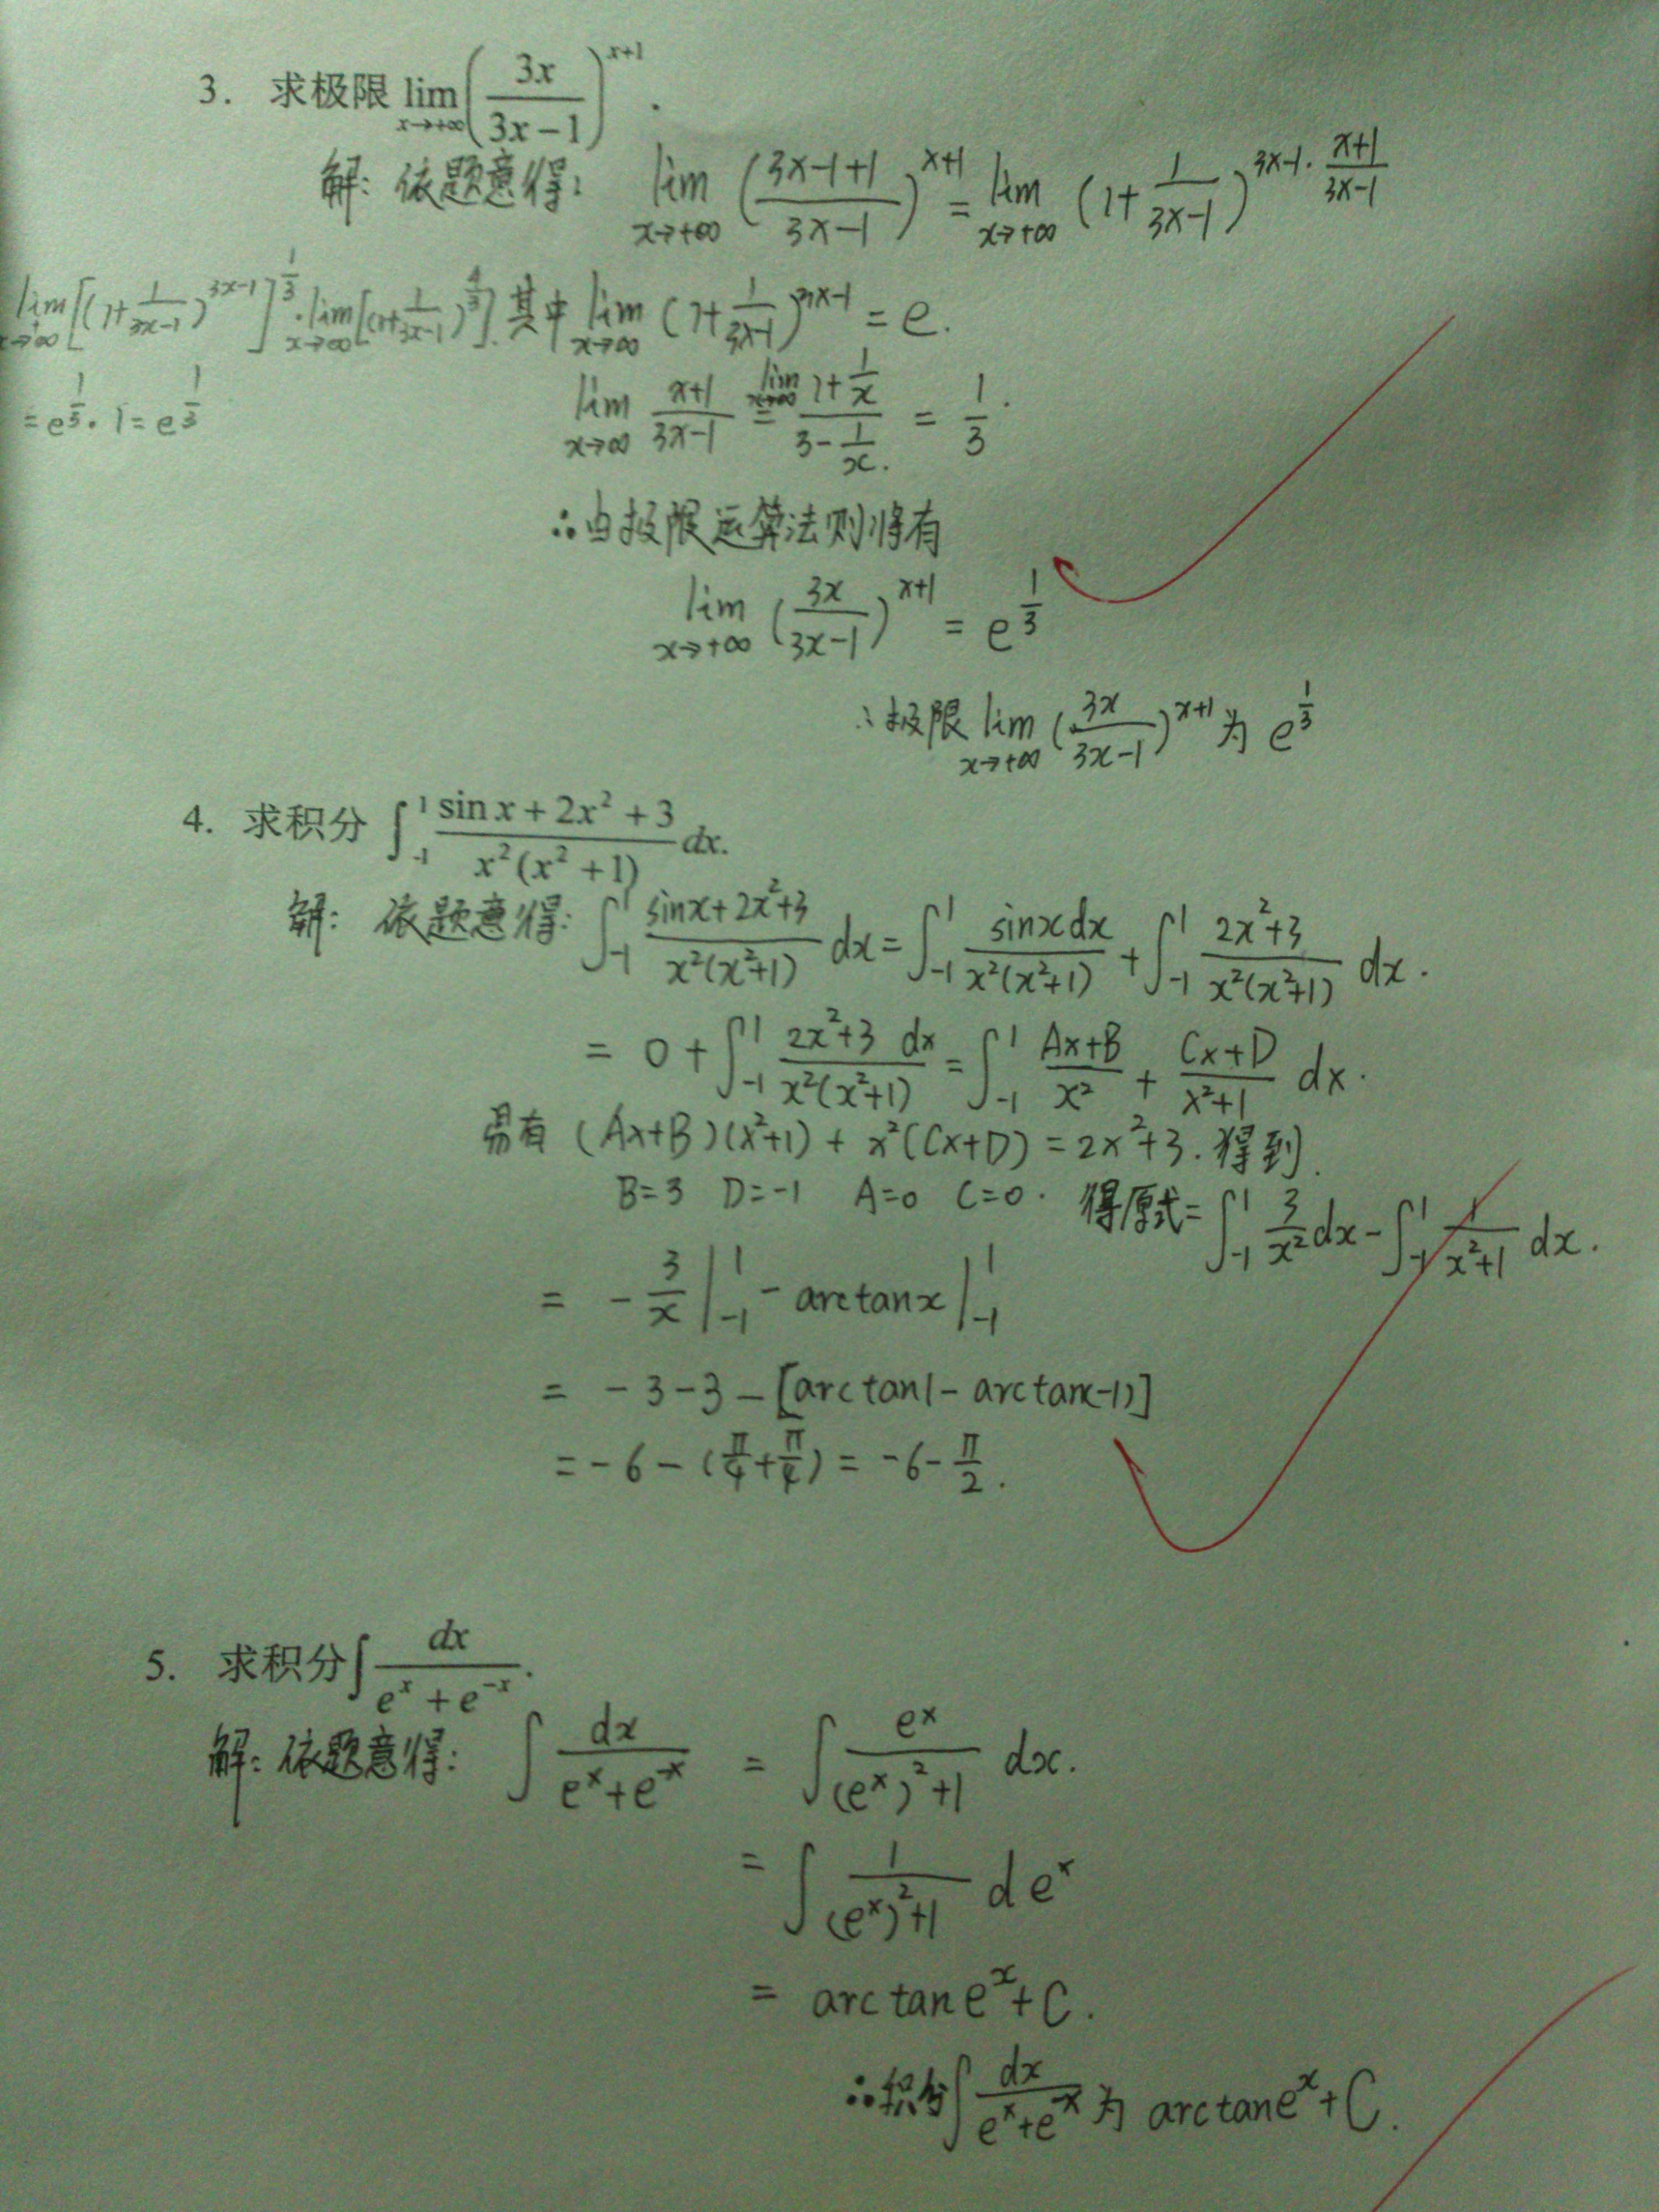 3. 求极限 lim_{x→+∞} (3x/(3x−1))^{x+1}.
解: 依题意得: lim_{x→+∞} ((3x−1+1)/(3x−1))^{x+1} = lim_{x→+∞} (1+1/(3x−1))^{3x−1·(x+1)/(3x−1)}
lim_{x→+∞} [(1+1/(3x−1))^{3x−1}]^{1/3} · lim_{x→∞} [(1+1/(3x−1))^{4/3}]. 其中 lim_{x→∞} (1+1/(3x−1))^{3x−1} = e.
= e^{1/3}·1 = e^{1/3}
lim_{x→∞} (x+1)/(3x−1) = lim_{x→∞} (1+1/x)/(3−1/x) = 1/3.
∴由极限运算法则将有
lim_{x→+∞} (3x/(3x−1))^{x+1} = e^{1/3}
∴极限 lim_{x→+∞} (3x/(3x−1))^{x+1} 为 e^{1/3}
4. 求积分 ∫_{-1}^{1} (sin x + 2x² + 3)/(x²(x² + 1)) dx.
解: 依题意得: ∫_{-1}^{1} (sinx+2x²+3)/(x²(x²+1)) dx = ∫_{-1}^{1} sinxdx/(x²(x²+1)) + ∫_{-1}^{1} (2x²+3)/(x²(x²+1)) dx.
= 0 + ∫_{-1}^{1} (2x²+3 dx)/(x²(x²+1)) = ∫_{-1}^{1} (Ax+B)/x² + (Cx+D)/(x²+1) dx.
易有 (Ax+B)(x²+1) + x²(Cx+D) = 2x²+3. 得到.
B=3 D=-1 A=0 C=0. 得原式= ∫_{-1}^{1} 3/x² dx − ∫_{-1}^{1} 1/(x²+1) dx.
= −3/x |_{-1}^{1} − arctanx |_{-1}^{1}
= −3−3−[arctan1− arctan(−1)]
= −6 − (π/4+π/4) = −6−π/2.
5. 求积分 ∫ dx/(e^x + e^{−x}).
解: 依题意得: ∫ dx/(e^x+e^{−x}) = ∫ e^x/((e^x)²+1) dx.
= ∫ 1/((e^x)²+1) de^x
= arctane^x+C.
∴积分∫ dx/(e^x+e^{−x}) 为 arctane^x+C.